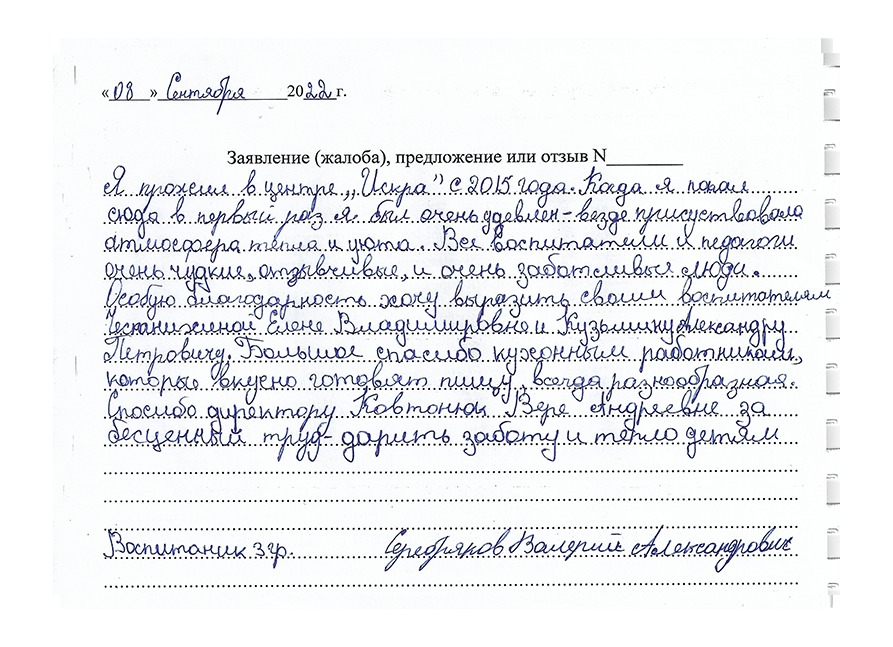 «08» Сентября 2022г.
Заявление (жалоба), предложение или отзыв N________
Я прожил в центре „Искра" с 2015 года. Када я попал
сюда в первый раз я был очень удевлен - везде присуствовала
атмосфера тепла и уюта. Все воспитатели и педагоги
очень чудкие, отзывчивые, и очень заботливые люди.
Особую благодарность хочу выразить своим воспитателям
Елене Владимировне и Кузьмину Александру
Петровичу. Большое спасибо кухонным работникам,
которые вкусно готовят пищу, всегда разнообразная.
Спосибо директору Ковтонюк Вере Андреевне за
бесценный труд - дарить заботу и тепло детям
Воспитаник 3 гр. Серебряков Валерий Александрович